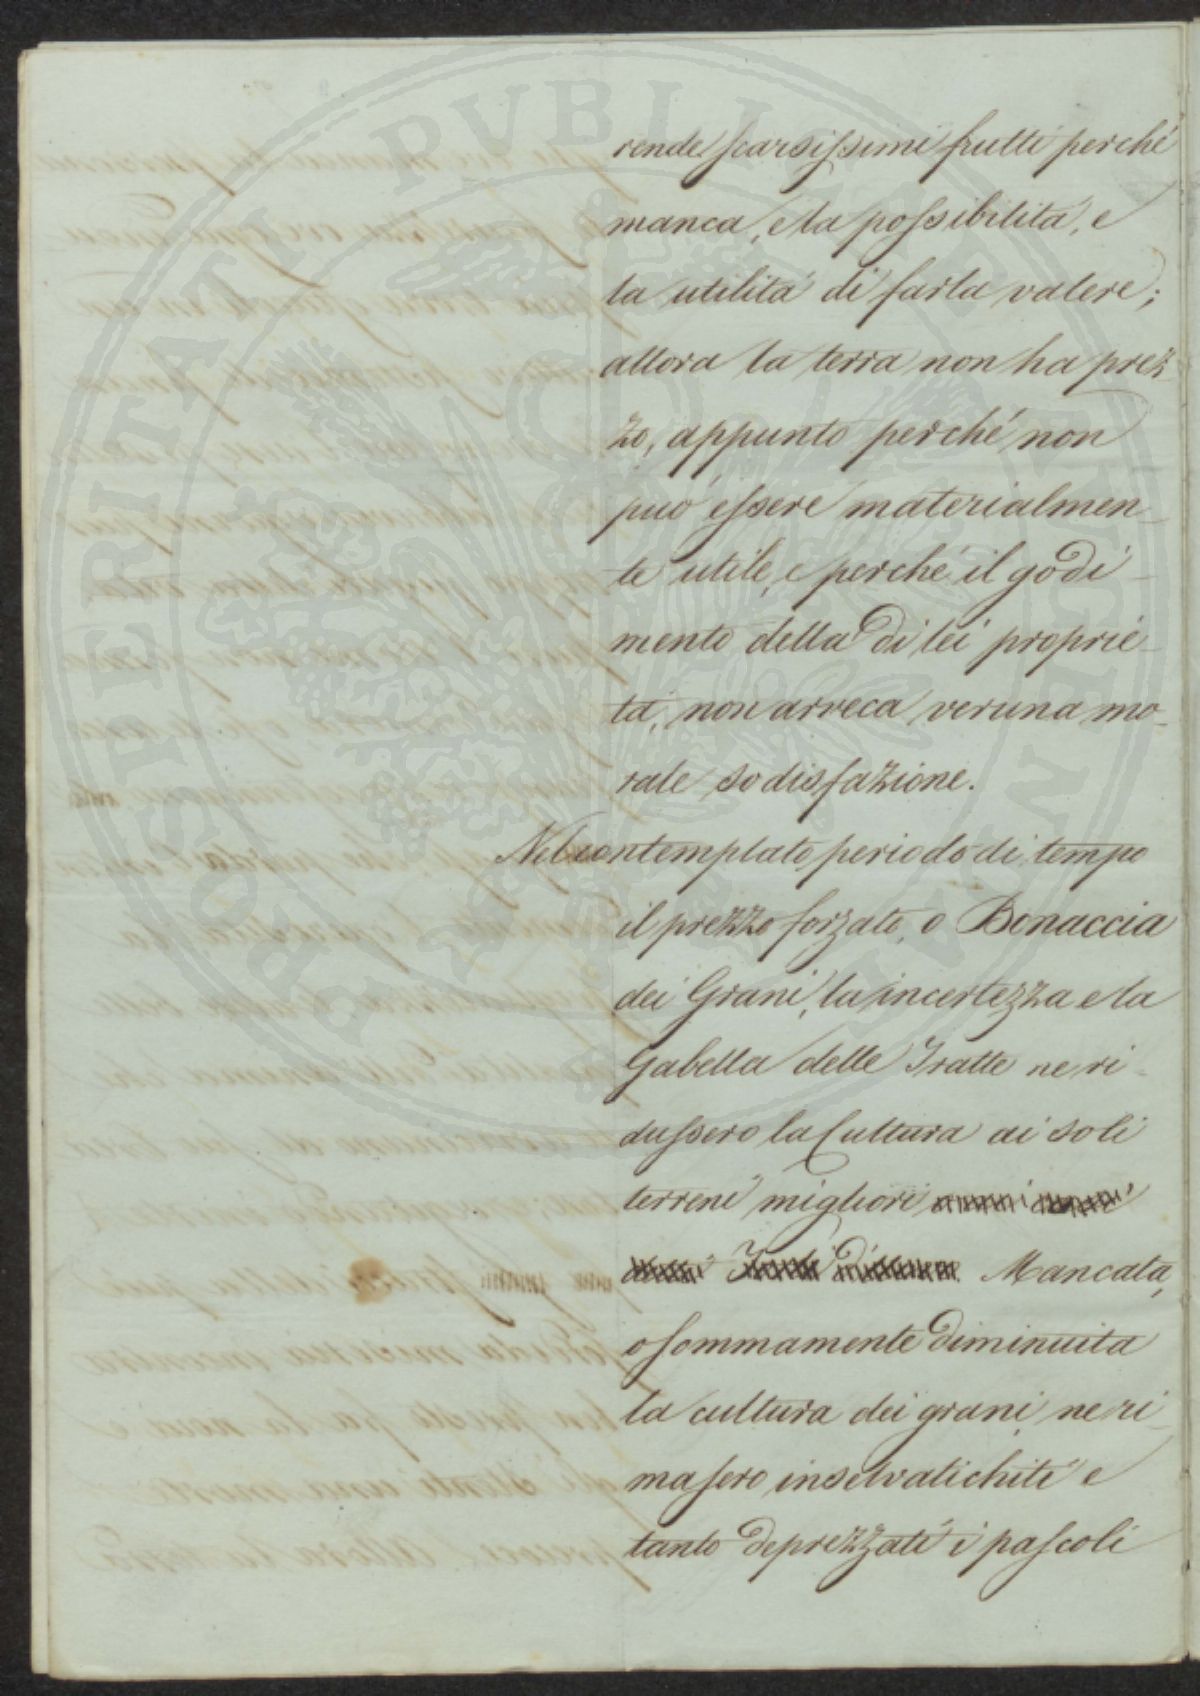 rende scarsissimi frutti perché
manca, e la possibilità, e
la utilità di farla valere;
allora la terra non ha prez-
zo, appunto perché non
può essere materialmen-
te utile, e perché il godi-
mento della di lei proprie-
tà, non arreca veruna mo-
rale sodisfazione.
Nel contemplato periodo di tempo
il prezzo forzato, o Bonaccia
dei Grani, la incertezza e la
Gabella delle Tratte ne ri-
dussero la Cultura ai soli
terreni migliori
Mancata,
o sommamente diminuita
la cultura dei grani, ne ri-
masero inselvatichiti e
tanto deprezzati i pascoli
PROSPERITATI PVBLICAE AVGENDAE